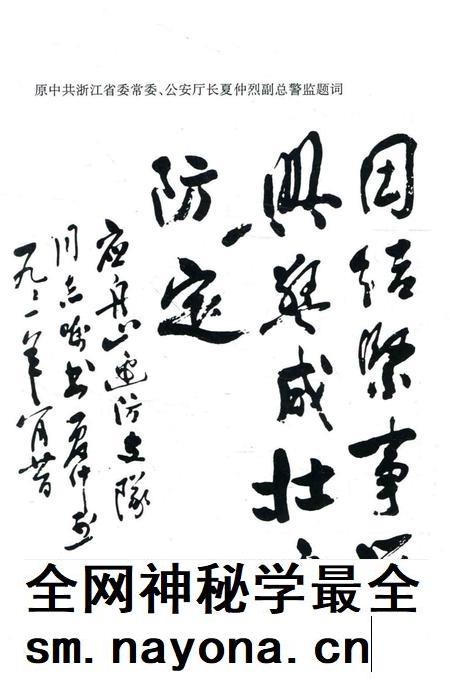 原中共浙江省委常委、公安厅长夏仲烈副总警监题词
团结紧事
兴警威壮
防定
应舟山边防支隊
同志嘱书夏仲烈
全网神秘学最全
sm.nayona.cn